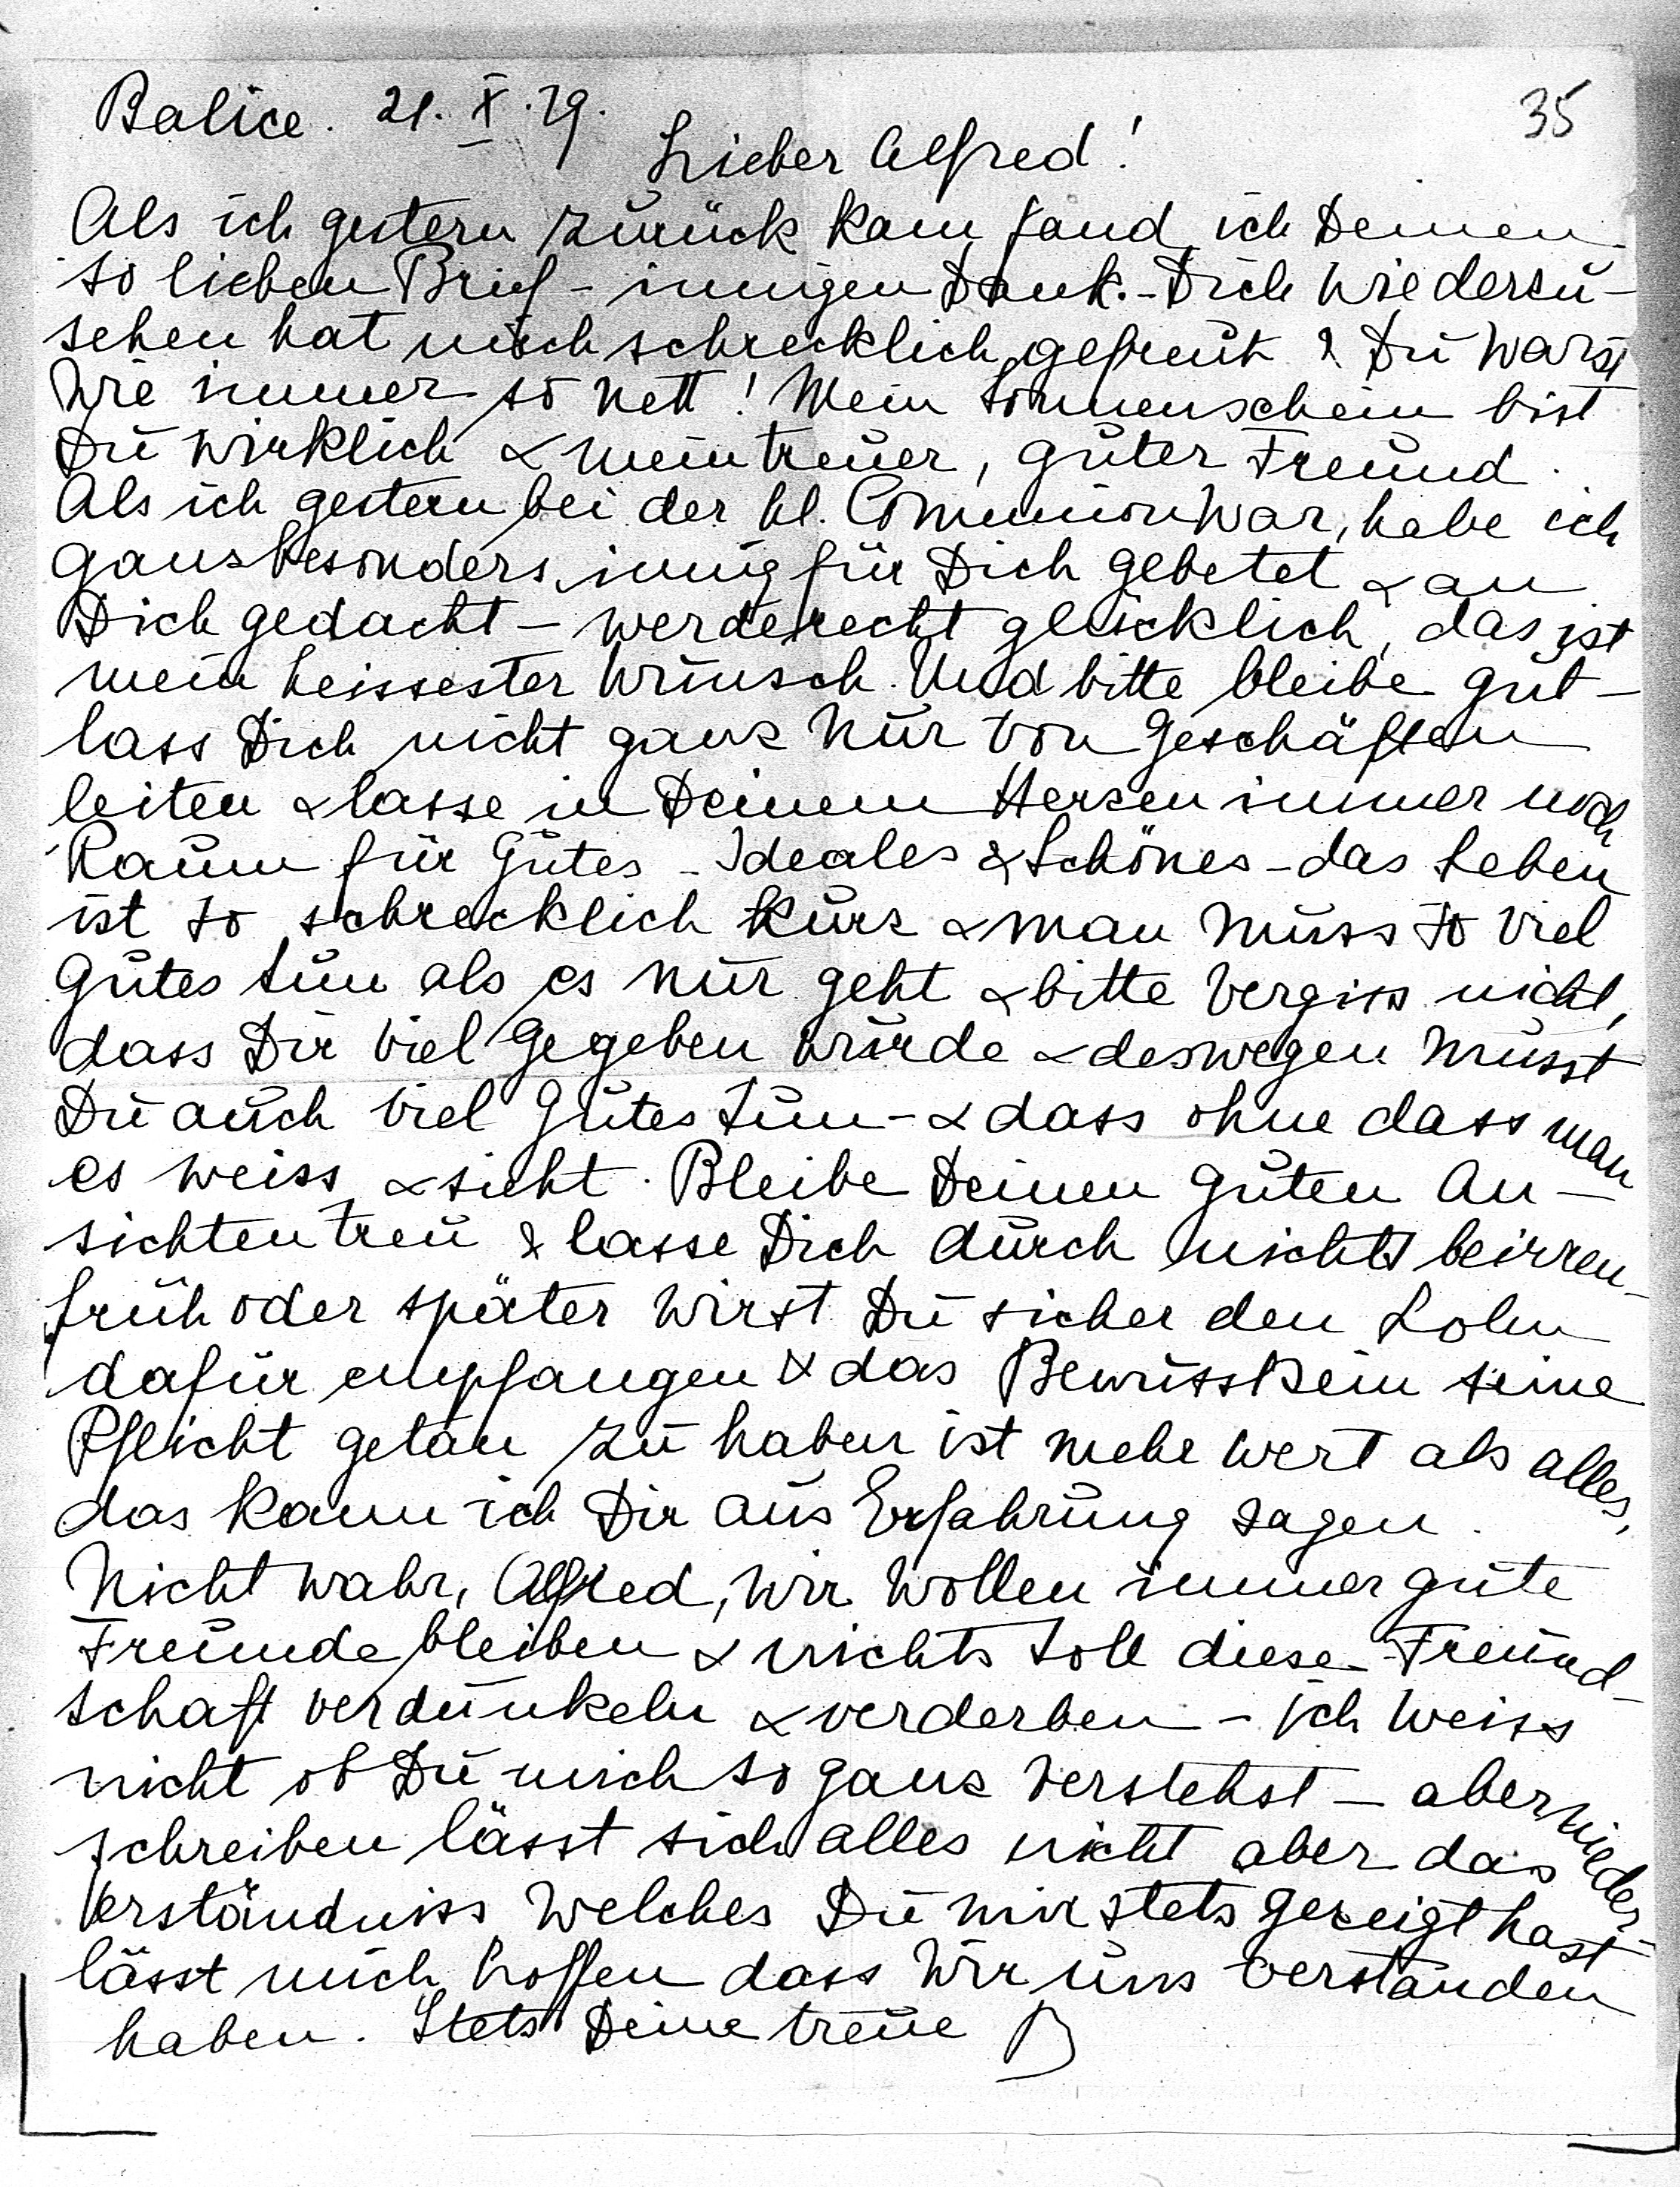 Balice. 21. X. 29.
35
Lieber Alfred!
Als ich gestern zurück kam fand ich Deinen
so lieben Brief - innigen Dank. - Dich wiederzu-
sehen hat mich schrecklich gefreut & Du warst
wie immer so nett! Mein Sonnenschein bist
Du wirklich & mein treuer, guter Freund.
Als ich gestern bei der hl. Comunion war, habe ich
ganz besonders innig für Dich gebetet & an
Dich gedacht - werde recht glücklich, das ist
mein heissester Wunsch. Und bitte bleibe gut -
lass Dich nicht ganz nur von Geschäften
leiten & lasse in Deinem Herzen immer noch
Raum für Gutes - Ideales & Schönes - das Leben
ist so schrecklich kurz & man muss so viel
Gutes tun als es nur geht & bitte vergiss nicht,
dass Dir viel gegeben wurde & deswegen musst
Du auch viel Gutes tun - & dass ohne dass man
es weiss & sieht. Bleibe Deinen guten An-
sichten treu & lasse Dich durch nichts beirren -
früh oder später wirst Du sicher den Lohn
dafür empfangen & das Bewusstsein seine
Pflicht getan zu haben ist mehr wert als alles,
das kann ich Dir aus Erfahrung sagen.
Nicht wahr, Alfred, wir wollen immer gute
Freunde bleiben & nichts soll diese Freund-
schaft verdunkeln & verderben - ich weiss
nicht ob Du mich so ganz verstehst - aber nieder-
schreiben lässt sich alles nicht aber das
Verständniss welches Du mir stets gezeigt hast
lässt mich hoffen dass wir uns verstanden
haben. Stets Deine treue B